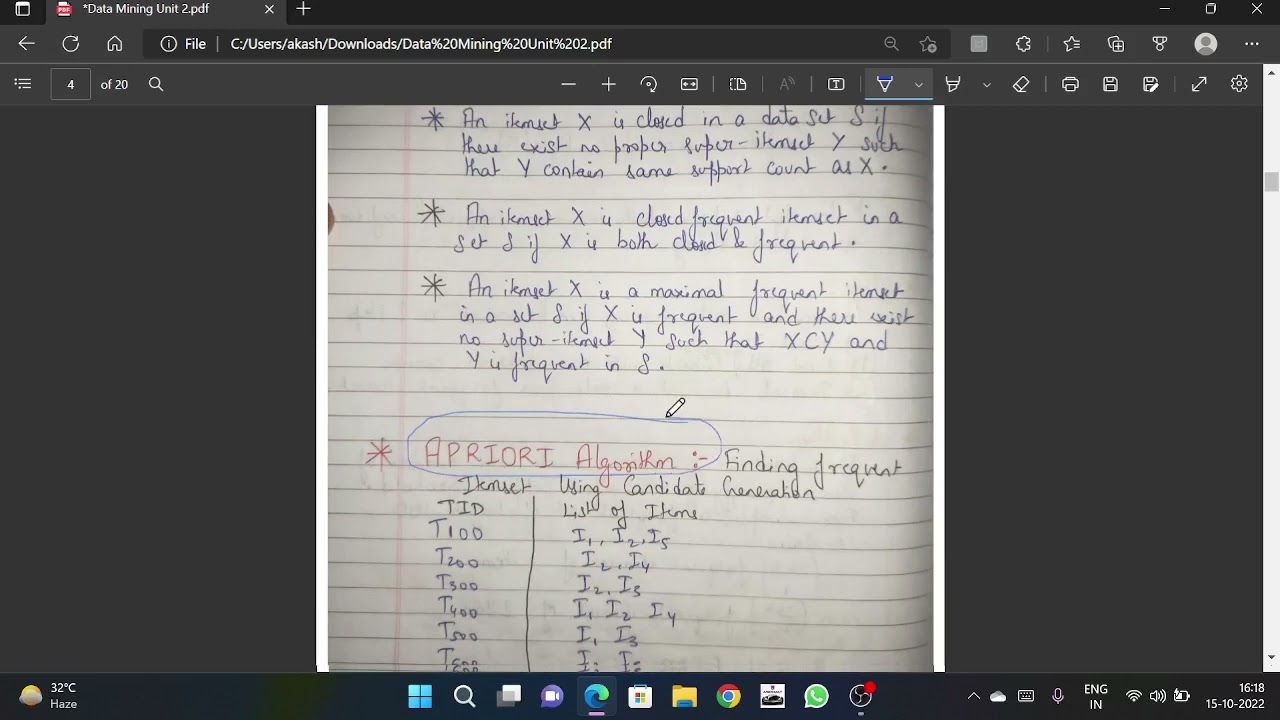 *Data Mining Unit 2.pdf
File C:/Users/akash/Downloads/Data%20Mining%20Unit%202.pdf
4 of 20
* An itemset X is closed in a data set S if
there exist no proper super-itemset Y such
that Y contain same support count as X.
* An itemset X is closed frequent itemset in a
set S if X is both closed & frequent.
* An itemset X is a maximal frequent itemset
in a set S if X is frequent and there exist
no super-itemset Y such that X⊂Y and
Y is frequent in S.
* APRIORI Algorithm :- Finding frequent
Itemset Using Candidate Generation
TID List of Items
T100 I1, I2, I5
T200 I2, I4
T300 I2, I3
T400 I1 I2 I4
T500 I1 I3
32°C
Haze
ENG
IN
16:18
15-10-2022